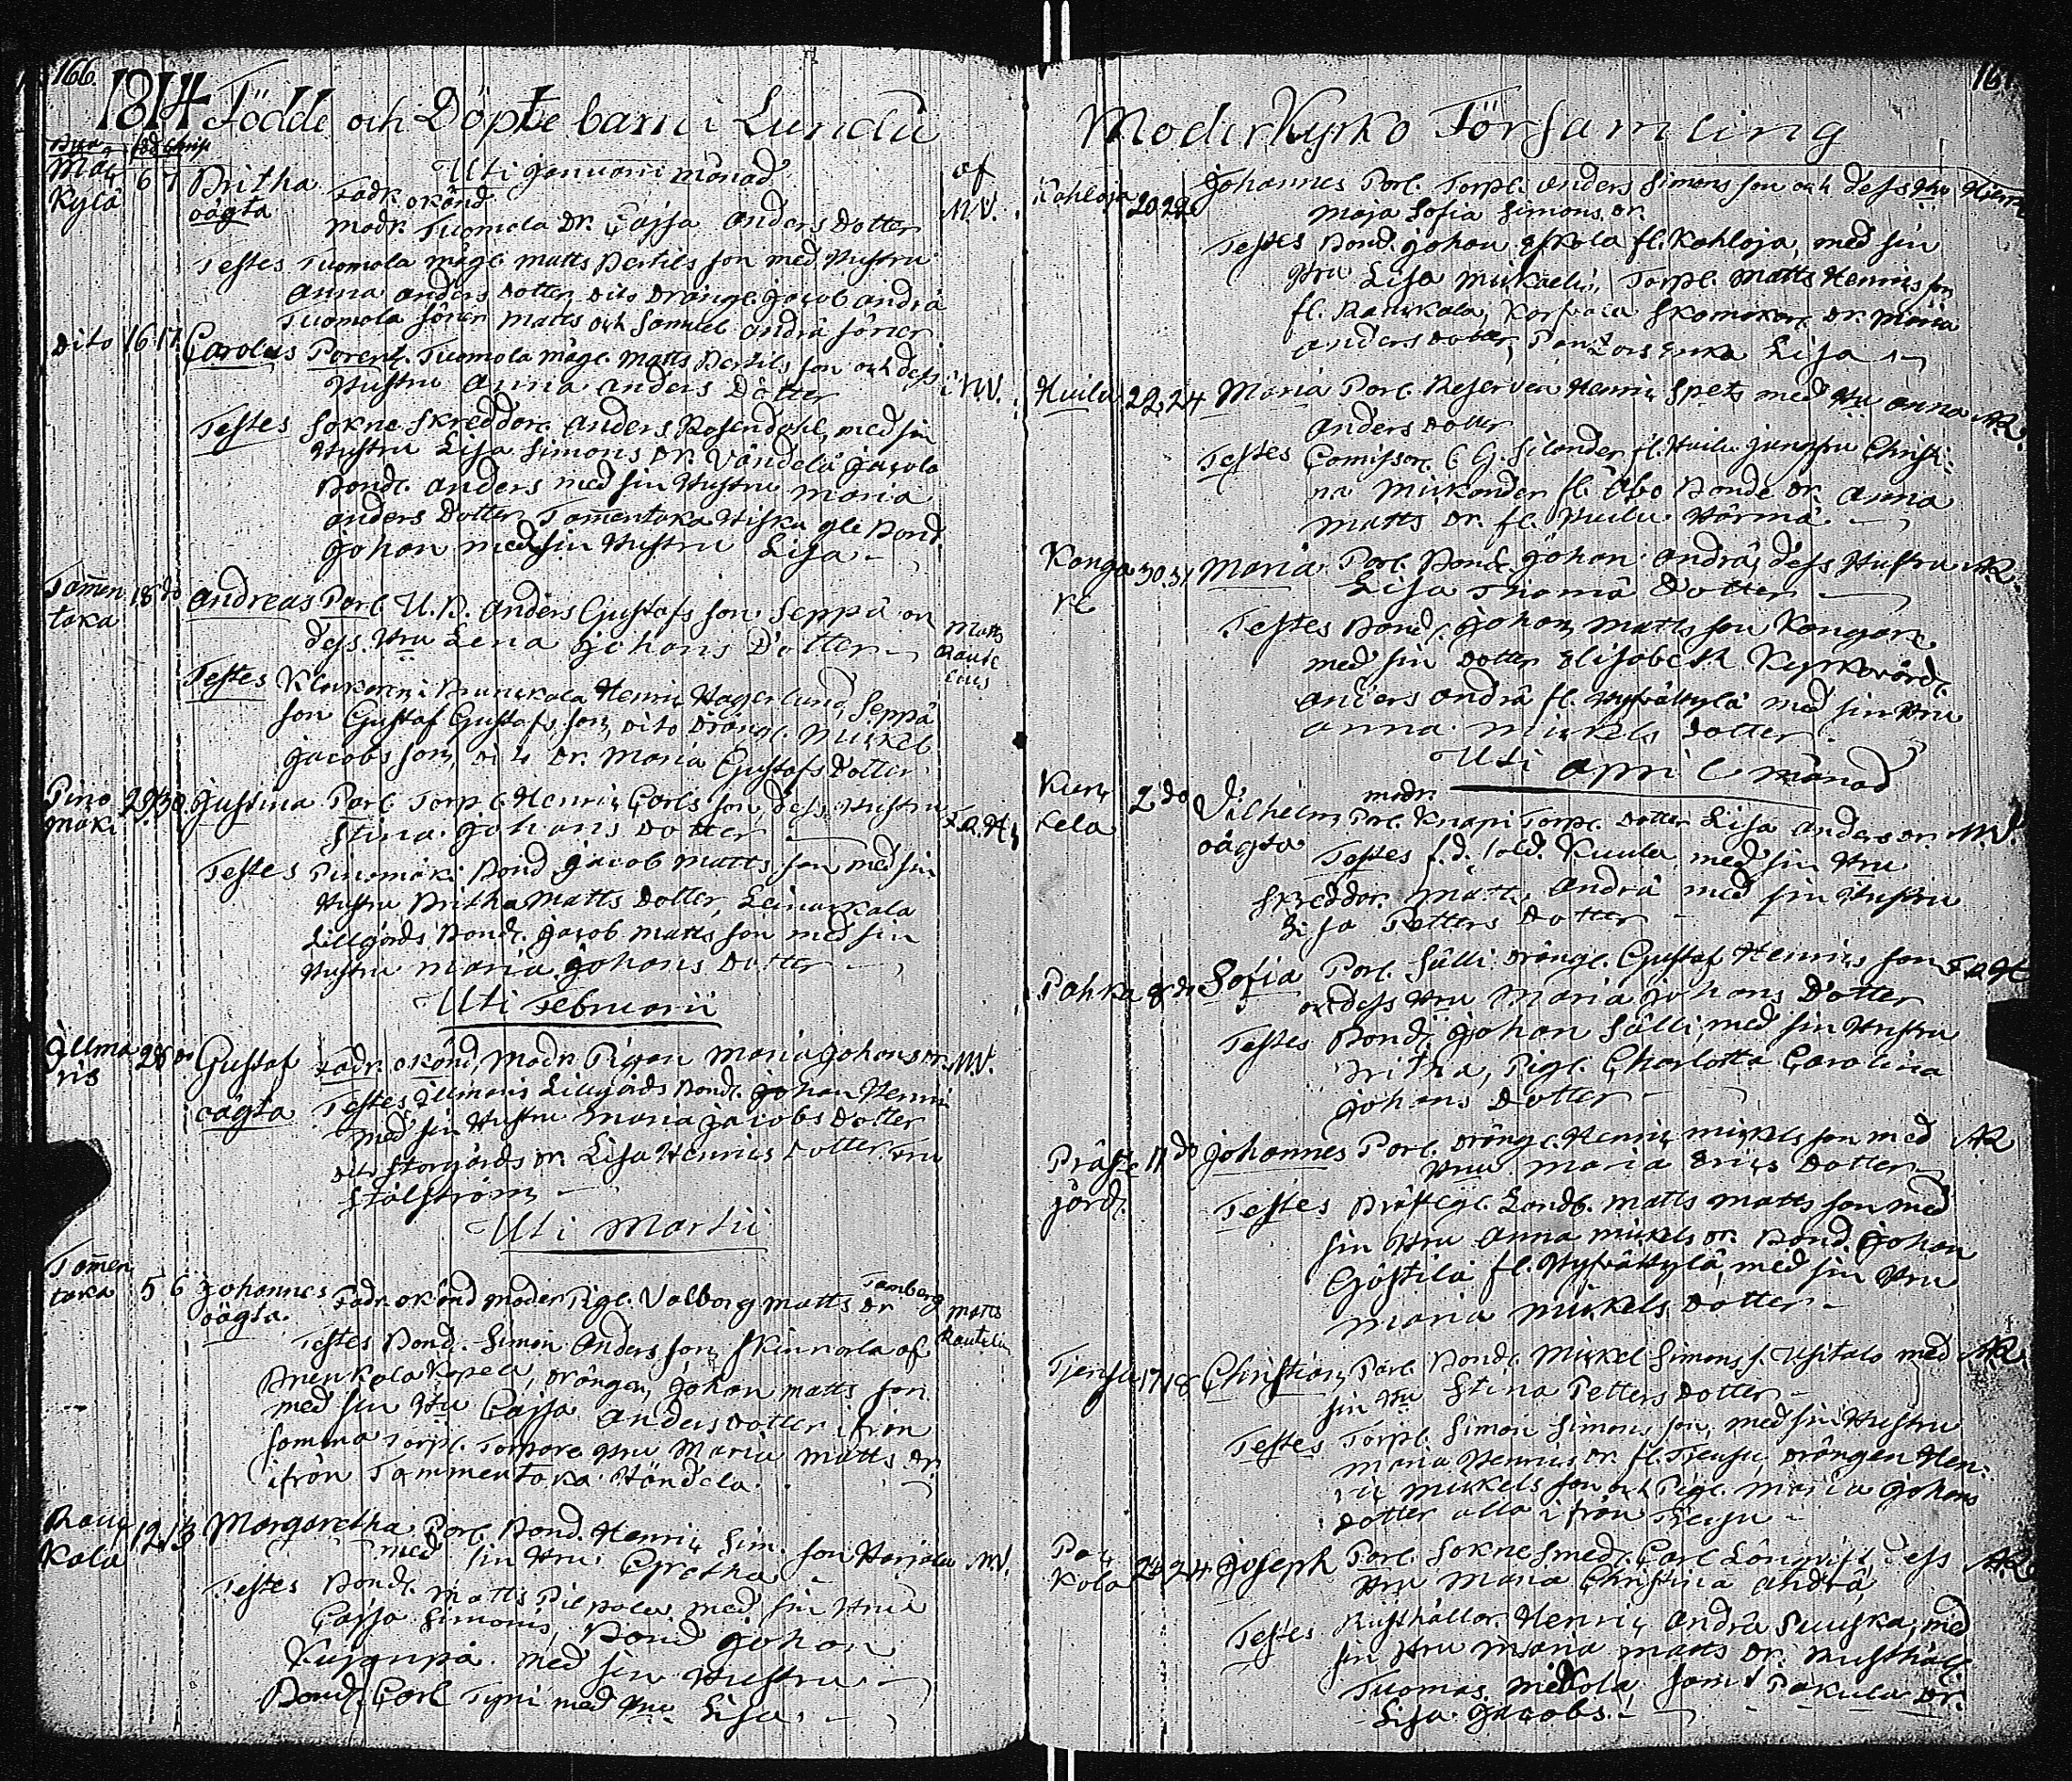 166.
1814 Födde och Döpte barn i Lundå
Uti Januarii månad
af
Mar,, 6 7 Britha Fadr. okänd
Kylä oägta Modr. Tuomola Dr. Cajsa Anders Dotter M.V.
Testes Tuomola mågl. Matts Bertils son med Hustru
Anna Anders Dotter, Dito Drängl. Jacob Andrä
Tuomola söner Matts och Samuel Andrä söner
Dito 16 17 Carolus Parent. Tuomola mågl. Matts Bertils son och dess
Hustru Anna Anders Dotter M.V.
Testes Sokne Skreddore Anders Rosendahl, med sin
Hustru Lisa Simons Dr. Jacola
Bonde Anders med sin Hustru Maria
Anders Dotter, Tam̄entaka Bond.
Johan med sin Hustru Lisa
Tam̄en 18 do Andreas Parl. U. B. Anders Gustafs son Seppä
taka dess Hru Lena Johans Dotter Matts Rautelius
Testes Klockaren i Henric Hagerlund, Seppä
son Gustaf Gustafs son, Dito Drängl. Mickel
Jacobs son, Dito Dr. Maria Gustafs Dotter
Pino 29 30 Justina Parl. Torp. Henric Carls son, dess Hustru
mäki Stina Johans Dotter
Testes Pinomäki Bond Jacob Matts son med sin
Hustru Britha Matts Dotter, Leinakkala
Lillgårds Bondl. Jacob Matts son med sin
Hustru Maria Johans Dotter
Uti Februarii
Illma 28 Gustaf Fadr. okänd, Modr. Pigan Maria Johans Dr. M.V.
ris oägta Testes Illmaris Lillgårds Bondl. Johan Henric
med sin Hustru Maria Jacobs Dotter
Storgårds Dr. Lisa Henrics Dotter, Fru
Stålström
Uti Martii
Tam̄en
taka 5 6 Johannes Fadr. okänd moder Pigl. Valborg Matts Dr Tamberg Matts
oägta. Rautelius
Testes Bond. Simon Anders son, Skinnarla af
Kapell, drängen Johan Matts son
med sin Hu Cajsa Anders Dotter ifrån
somma Torpl. Torpare Hru Maria Matts Dr.
ifrån Tammentaka Händela.
Raus,,
Kala 12 13 Margaretha Parl. Bond. Henric Sim. son Harjola
med sin Hru. Gretha M.V.
Testes Bondl. Matts Pilpala med sin Hru
Cajsa Simons, Bond Johan
med sin Hustru
Bondl. Carl Tyni med Hru Lisa
Moderkyrko Församling
Kahloja 20 22 Johannes Parl. Torpl. Anders Simons son och dess Hru
Maja Sofia Simons Dr.
Testes Bond. Johan Eskola fl. Kahloja, med sin
Hru Lisa Mickaeli, Torpl. Matts Henrics son
fl. Ranckala, Skomakare Dr. Maria
Anders Dotter, Enka Lisa
Huilu 22. 24 Maria Parl. Reserven Henric Spets med Hu Anna A.R.
Anders Dotter
Testes Comissare C. G. Silander fl. Huilu Jungfru Christi-
na Mickander fl. Åbo Bonde Dr. Anna
Matts Dr. fl. Huilu Härmä
Konga 30. 31 Maria Parl. Bond. Johan Andrä, dess Hustru A.R.
re Lisa Thoma Dotter
Testes Bond. Johan Matts son Kongare
med sin Dotter Elisabeth Kyrkovärd.
Anders Andrä fl. Hyfväkylä med sin Hru
Anna Mickels Dotter
Uti April månad
Kurc 2 do Vilhelm modr. Parl. Knapi Torpl. Dotter Lisa Anders Dr. M.V.
kela oägta Testes f.d. sold. Kuula, med sin Hru
Skreddor. Matts Andrä med sin Hustru
Lisa Petters Dotter
Pahka 8 do Sofia Parl. Sälli drängl. Gustaf Henrics son
och dess Hru Maria Johans Dotter
Testes Bondl. Johan Sälli, med sin Hustru
Britha, Pigl. Charlotta Carolina
Johans Dotter
Präste 11 do Johannes Parl. drängl. Henric Mickels son med A R
gård. Hru Maria Erics Dotter
Testes Prästgl. Landb. Matts Matts son med
sin Hru Anna Mickels Dr. Bond. Johan
Gästilä fl. Hyfväkylä, med sin Hru
Maria Mickels Dotter
Tjensu 17 18 Christian, Parl. Bondl. Mickel Simons s. Usitalo med A.R.
sin Hu Stina Petters Dotter
Testes Torpl. Simon Simons son, med sin Hustru
Maria Henrics Dr. fl. Tjensu, drängen Hen-
ric Mickels son och Pigl. Maria Johans
Dotter alla ifrån Tjensu
Pac,, 24 24 Joseph Parl. Soknesmed. Carl Långqvist, dess A.R.
kola Hru Maria Christina Andrä,
Testes Rusthållar. Henric Andrä med
sin Hru Maria Matts Dr. Rusthåll.
Tuomas samt Pakula Dr.
Lisa Jacobs